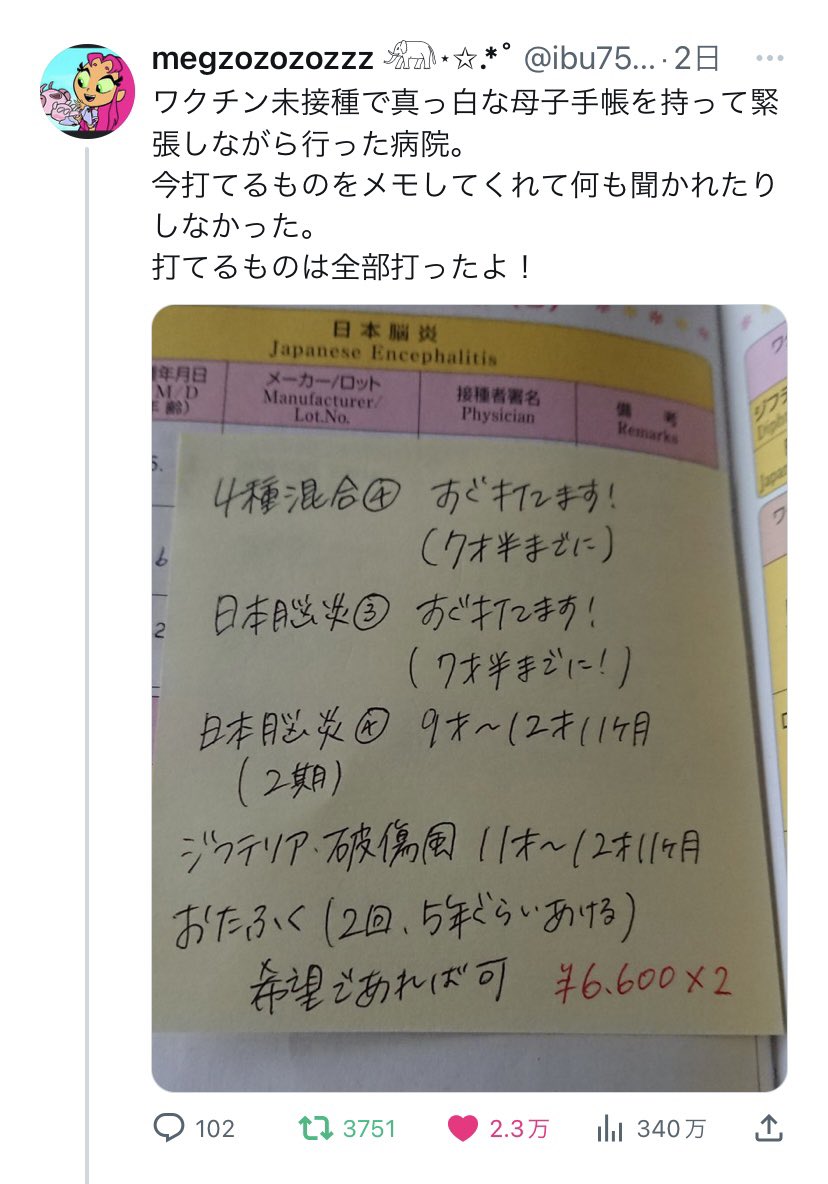 megzozozozzz 𓃰⋆☆.*˚ @ibu75... · 2日
ワクチン未接種で真っ白な母子手帳を持って緊
張しながら行った病院。
今打てるものをメモしてくれて何も聞かれたり
しなかった。
打てるものは全部打ったよ！
日本脳炎
Japanese Encephalitis
年月日 メーカー/ロット 接種者署名 備考
M/D Manufacturer/ Physician Remarks
齢) Lot.No.
4種混合④ すぐ打てます!
(7才半までに)
日本脳炎③ すぐ打てます!
(7才半までに!)
日本脳炎④ 9才〜12才11ヶ月
(2期)
ジフテリア・破傷風 11才〜12才11ヶ月
おたふく (2回、5年ぐらいあける)
希望であれば可 ¥6.600×2
102 3751 2.3万 340万